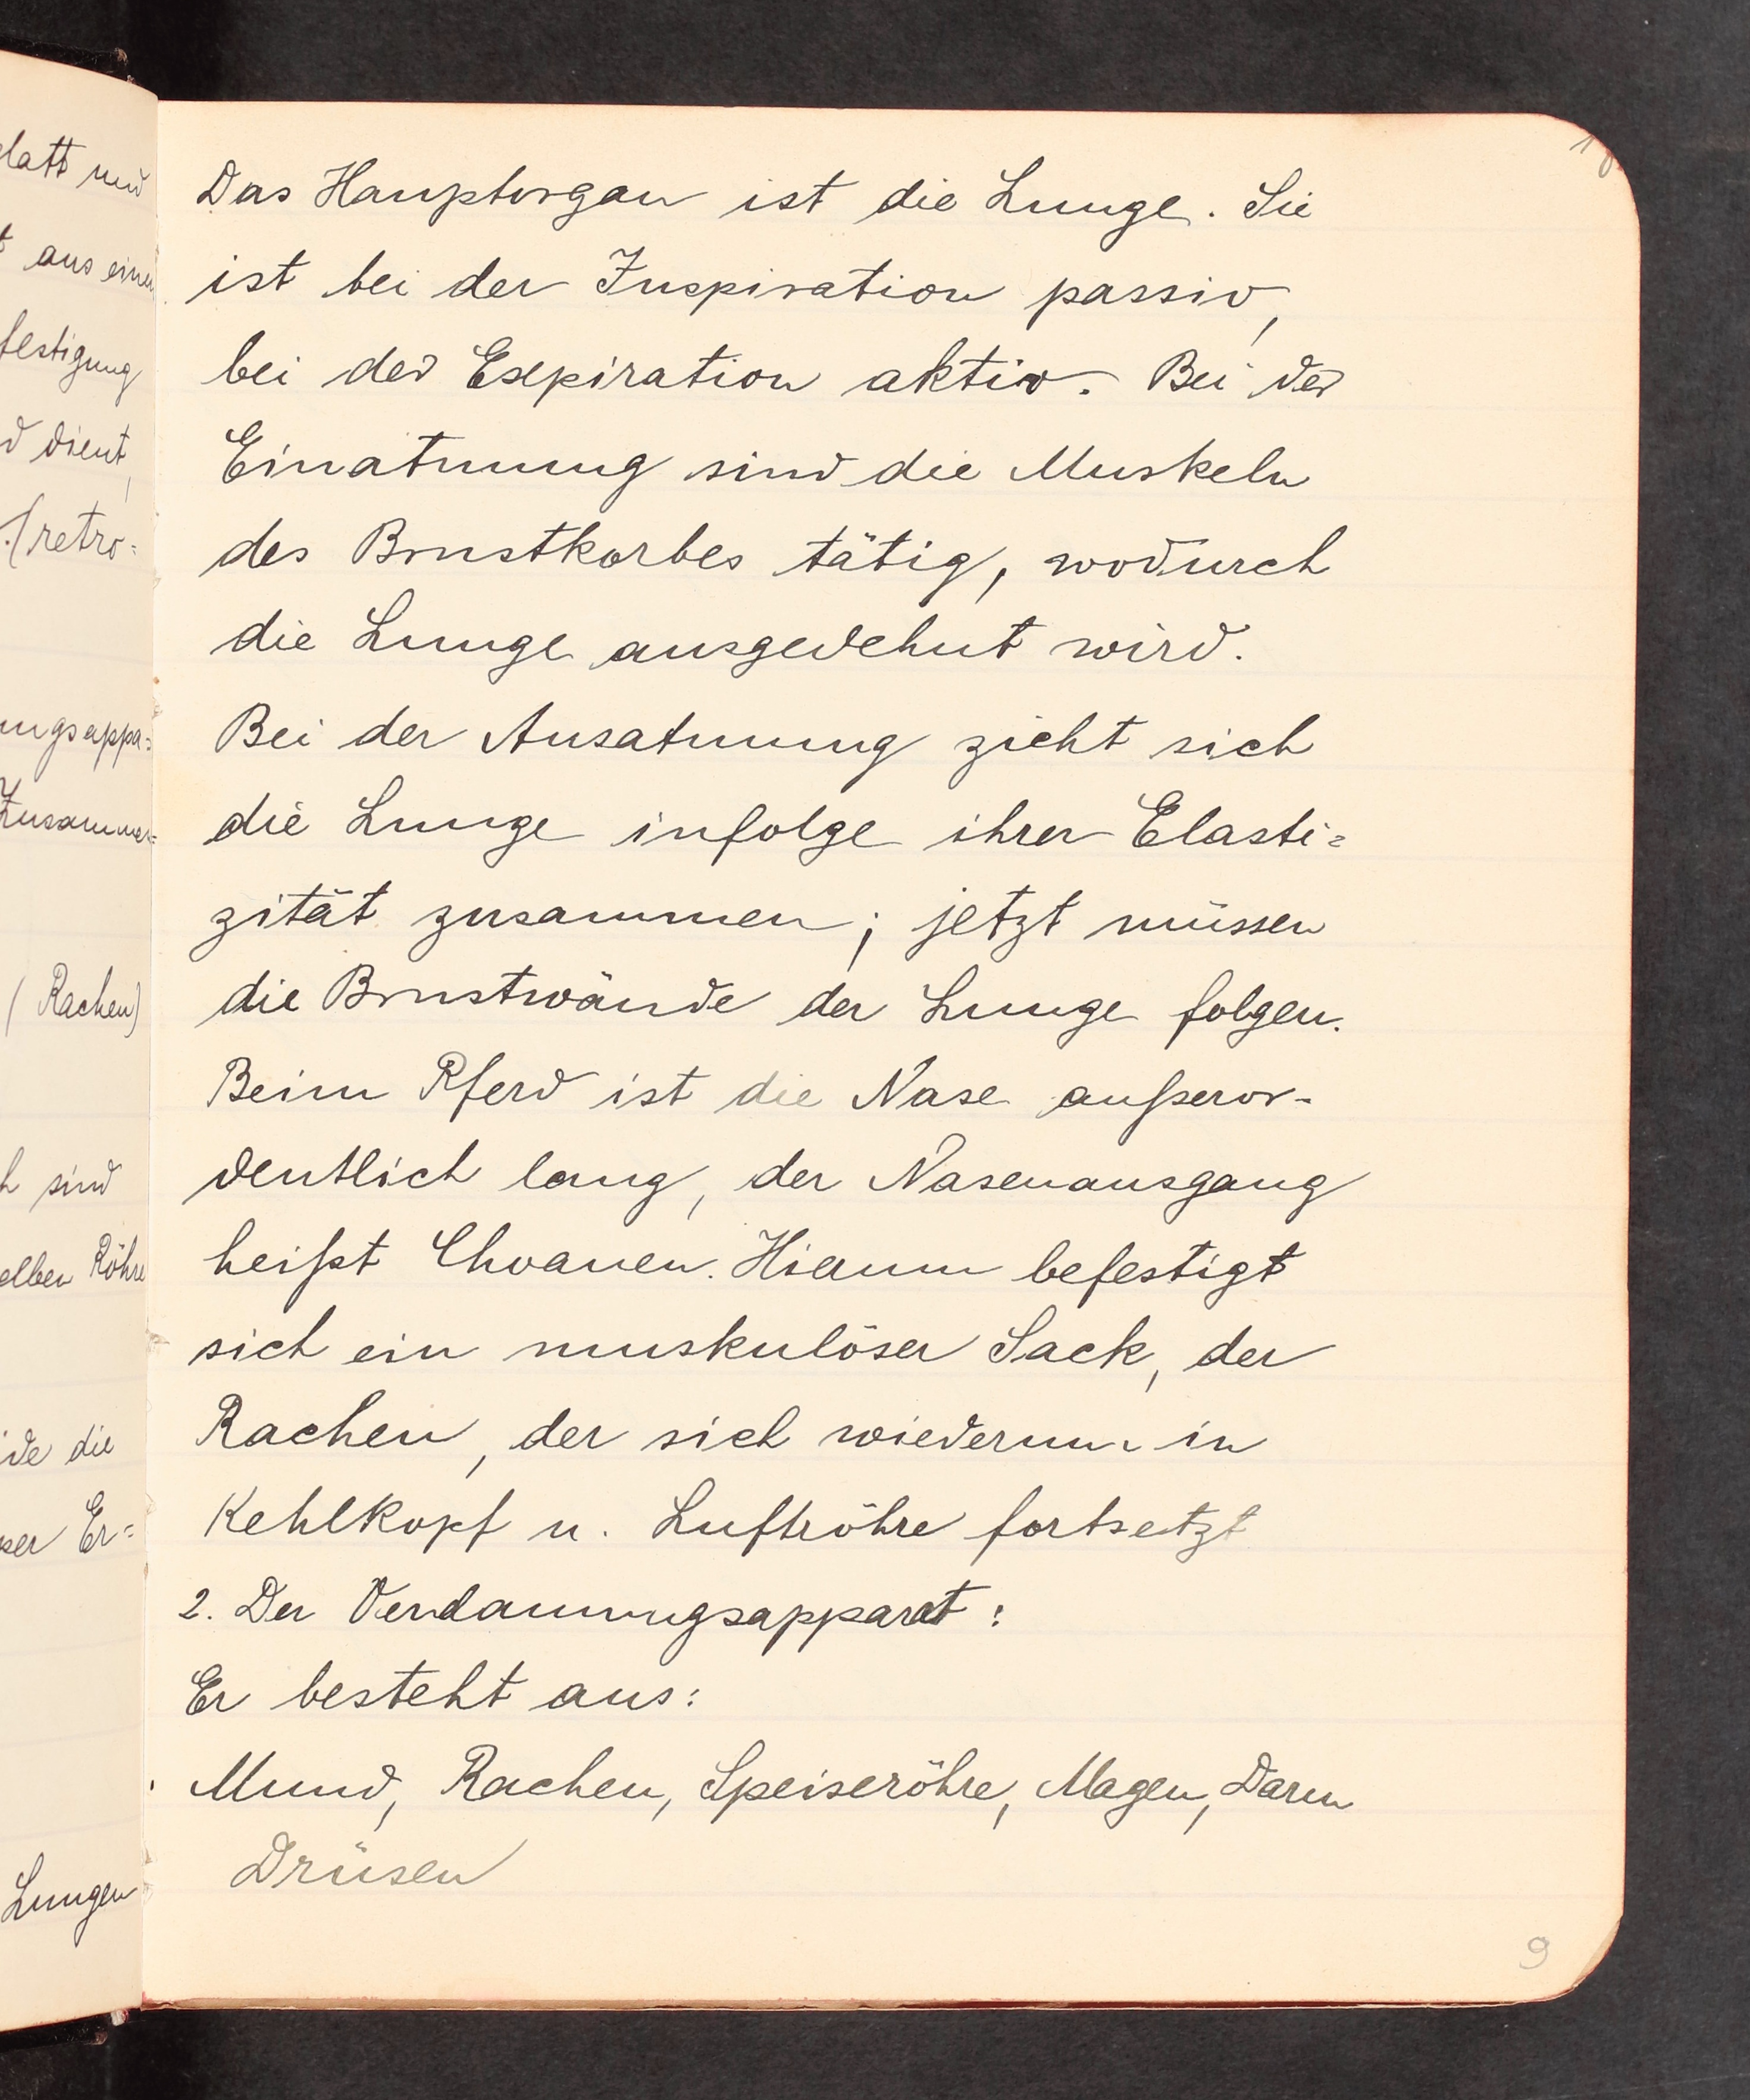 latt und
aus einer
festigung
d dient,
(retro=
ungsappa=
Zusammen=
(Rachen)
h sind
elben Röhre
ide die
ser Er=
Lungen
Das Hauptorgan ist die Lunge. Sie
ist bei der Inspiration passiv,
bei der Exspiration aktiv. Bei der
Einatmung sind die Muskeln
des Brustkorbes tätig, wodurch
die Lunge ausgedehnt wird.
Bei der Ausatmung zieht sich
die Lunge infolge ihrer Elasti=
zität zusammen; jetzt müssen
die Brustwände der Lunge folgen.
Beim Pferd ist die Nase außeror-
dentlich lang, der Nasenausgang
heißt Choanen. Hieran befestigt
sich ein muskulöser Sack, der
Rachen, der sich wiederum in
Kehlkopf u. Luftröhre fortsetzt
2. Der Verdauungsapparat:
Er besteht aus:
Mund, Rachen, Speiseröhre, Magen, Darm
Drüsen
9